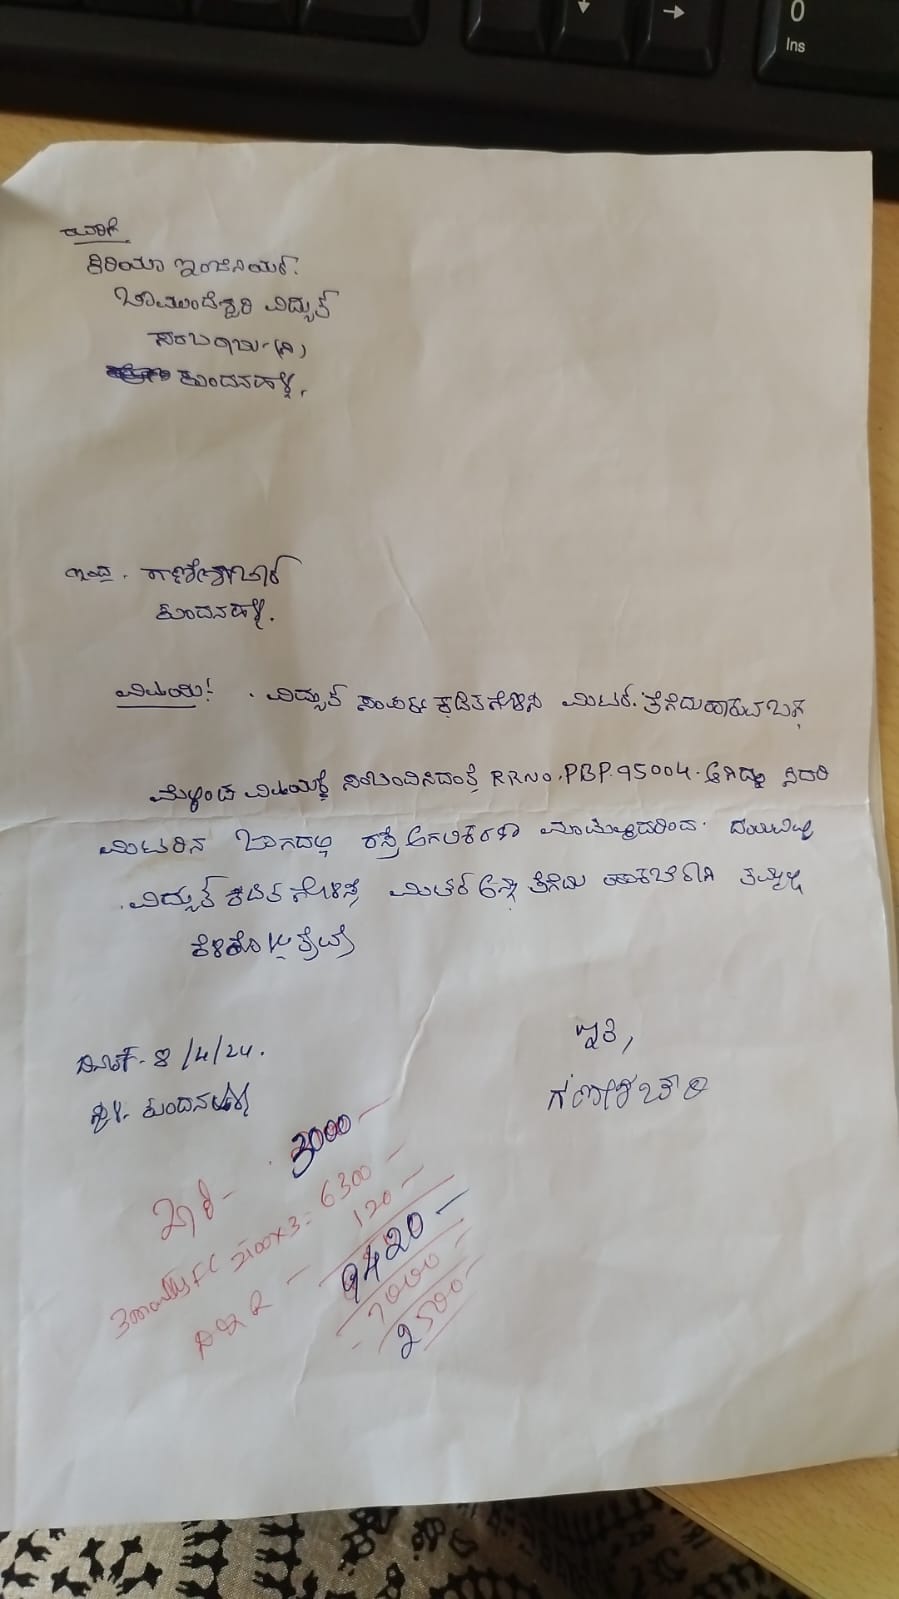 ರವರಿಗೆ
ಕಿರಿಯಾ ಇಂಜಿನಿಯರ್.
ಚಾಮುಂಡೇಶ್ವರಿ ವಿದ್ಯುತ್
ಸರಬರಾಜು-(ನಿ)
ಕುಂದನಹಳ್ಳಿ,
ಇಂದ.
ಕುಂದನಹಳ್ಳಿ.
ವಿಷಯ! . ವಿದ್ಯುತ್ ಸಂಪರ್ಕ ಕಡಿತಗೊಳಿಸಿ ಮಿಟರ್. ತೆಗೆದುಹಾಕುವ ಬಗ್ಗೆ
ಮೇಲ್ಕಂಡ ವಿಷಯಕ್ಕೆ ಸಂಬಂದಿಸಿದಂತೆ RRNO.PBP.95004. ಆಗಿದ್ದು ಸದರಿ
ಮಿಟರಿನ ಜಾಗದಲ್ಲಿ ರಸ್ತೆ ಅಗಲಿಕರಣ ಮಾಡುತ್ತಿದ್ದರಿಂದ. ದಯವಿಟ್ಟು
ವಿದ್ಯುತ್ ಕಡಿತಗೊಳಿಸಿ ಮಿಟರ್ ಅನ್ನು ತೆಗೆದು ಹಾಕಬೇಕಾಗಿ ತಮ್ಮಲ್ಲಿ
ಕೇಳಿಕೊಳ್ಳುತ್ತೇವೆ
ಇತಿ,
ದಿನಾಂಕ- 8/4/24.
ಸ್ಥಳ. ಕುಂದನಹಳ್ಳಿ
3000-
3monthly FC 2100x3= 6300-
120-
9420-
- 7000-
2500-